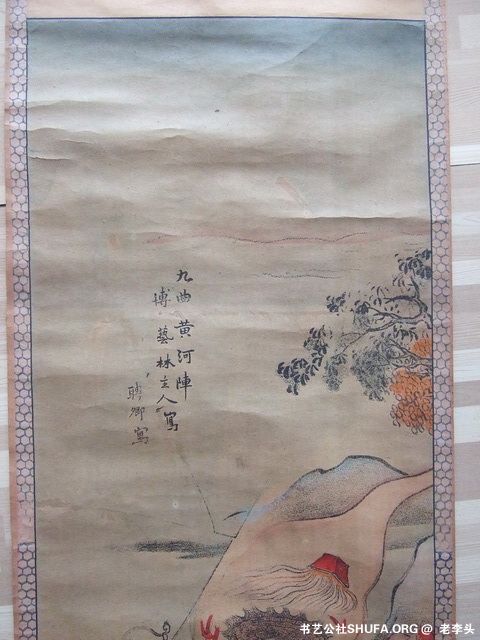 九曲黄河陣
博藝林主人寫
聘卿寫
书艺公社SHUFA.ORG @ 老李头